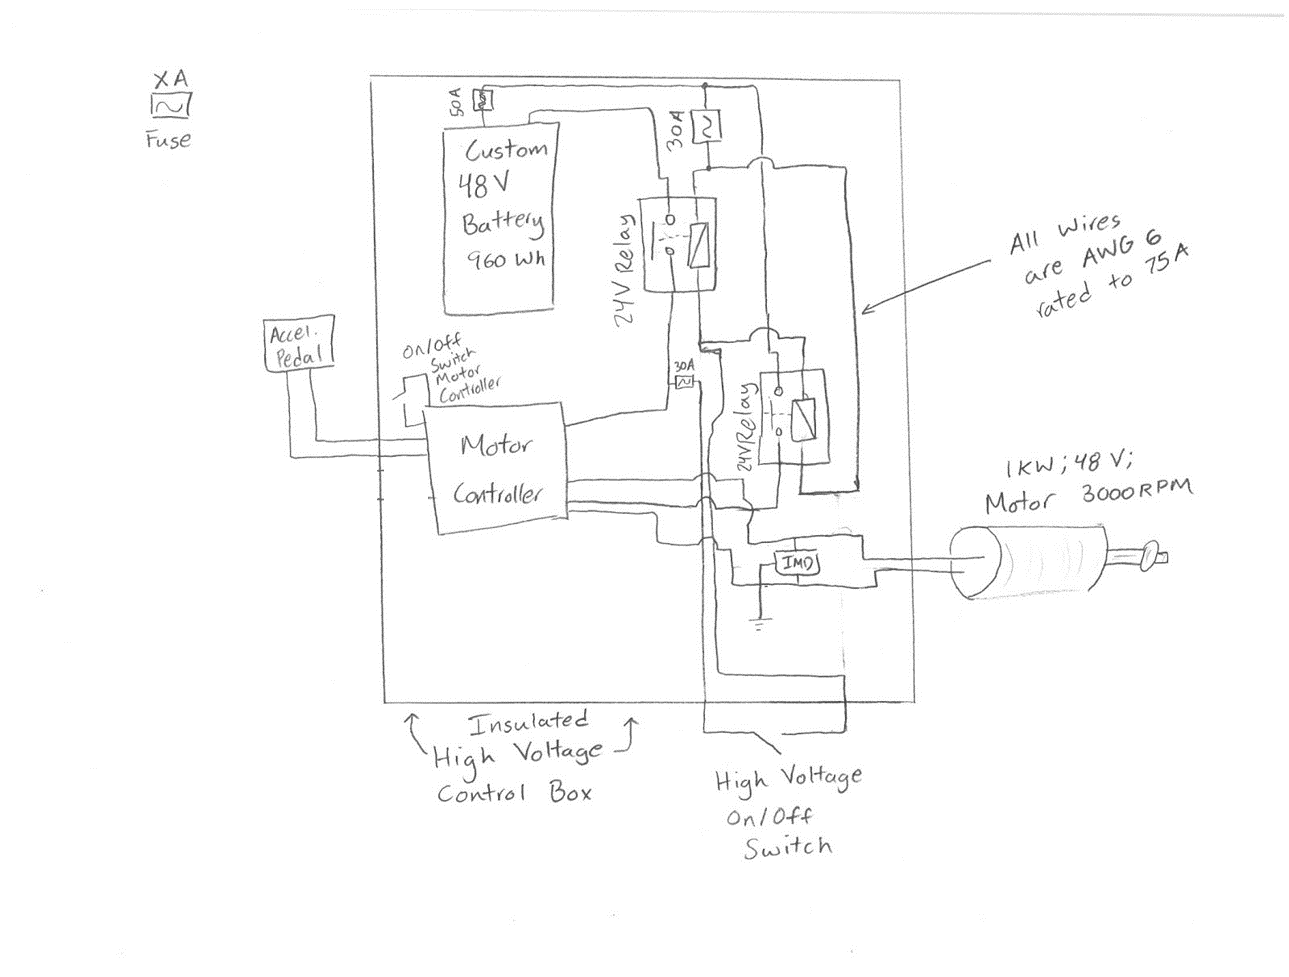 XA
Fuse
50A
Custom
48V
Battery
960 Wh
30A
24V Relay
All wires
are AWG 6
rated to 75A
Accel.
Pedal
On/Off
Switch
Motor
Controller
30A
24V Relay
Motor
Controller
1KW; 48V;
Motor 3000RPM
IMD
Insulated
High Voltage
Control Box
High Voltage
On/Off
Switch